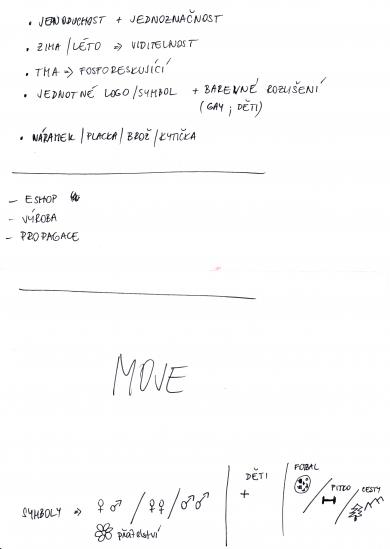 • JEDNODUCHOST + JEDNOZNAČNOST
• ZIMA/LÉTO => VIDITELNOST
• TMA => FOSFORESKUJÍCÍ
• JEDNOTNÉ LOGO/SYMBOL + BAREVNÉ ROZLIŠENÍ
(GAY; DĚTI)
• NÁRAMEK/PLACKA/BROŽ/KYTIČKA
– ESHOP
– VÝROBA
– PROPAGACE
MOVE
SYMBOLY => ♀♂ / ♀♀ / ♂♂
přátelství
DĚTI
+
FOTBAL
FITKO
CESTY